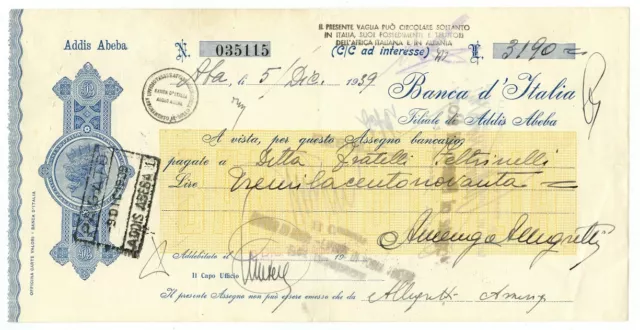 Addis Abeba
N. 035115
IL PRESENTE VAGLIA PUÒ CIRCOLARE SOLTANTO
IN ITALIA, SUOI POSSEDIMENTI E TERRITORI
DELL'AFRICA ITALIANA E IN ALBANIA
(C/C ad interesse) £. 3190 =
Aba, li 5/Dic. 1939
BANCA D'ITALIA
ADDIS ABEBA
Banca d'Italia
Filiale di Addis Abeba
A vista, per questo Assegno bancario,
pagate a Ditta Fratelli Feltrinelli
Lire Tremilacentonovanta =
PAGATO
9 DIC 1939
ADDIS ABEBA
Amerigo Allegretti
Addebitato il 19
Il Capo Ufficio
Il presente Assegno non può essere emesso che da Allegretti Amerigo
OFFICINA CARTE VALORI - BANCA D'ITALIA